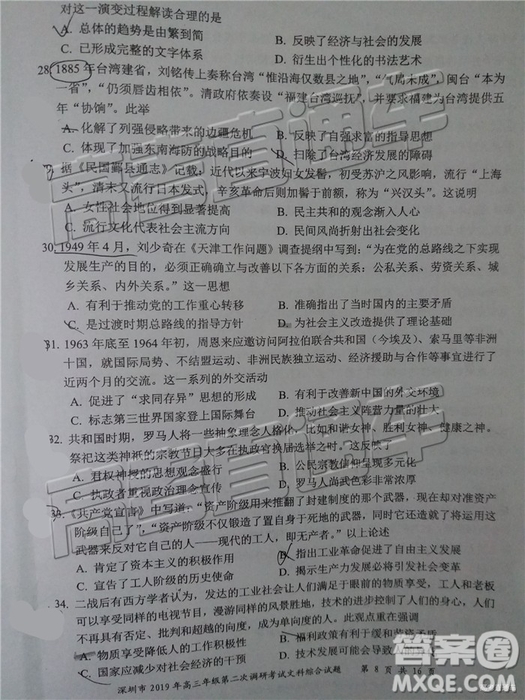 对这一演变过程解读合理的是
A. 总体的趋势是由繁到简 B. 反映了经济与社会的发展
C. 已形成完整的文字体系 D. 衍生出个性化的书法艺术
28. 1885年台湾建省，刘铭传上奏称台湾“惟沿海仅数县之地”，“气局未成”，闽台“本为
一省”，“仍须唇齿相依”。清政府依奏设“福建台湾巡抚”，并要求福建为台湾提供五
年“协饷”。此举
A. 化解了列强侵略带来的边疆危机 B. 反映了自强求富的指导思想
C. 加强了东南海防的战略目的 D. 扫除了台湾经济发展的障碍
据《民国鄞县通志》记载，近代以来宁波妇女发髻，初受苏沪之风影响，流行“上海
头”，清末又流行日本发式，辛亥革命后则加髻于前额，称为“兴汉头”。这说明
A. 女性社会地位得到显著提高 B. 民主共和的观念渐入人心
C. 流行文化代表社会主流方向 D. 民间风尚折射社会变化
30. 1949年4月，刘少奇在《天津工作问题》调查提纲中写到：“为在党的总路线之下实现
发展生产的目的，必须正确确立与改善以下各方面的关系：公私关系、劳资关系、城
乡关系、内外关系。”这一思想
A. 有利于推动党的工作重心转移 B. 准确指出了当时国内的主要矛盾
C. 是过渡时期总路线的指导方针 D. 为社会主义改造提供了理论基础
31. 1963年底至1964年初，周恩来应邀访问阿拉伯联合共和国（今埃及）、索马里等非洲
十国，就国际局势、不结盟运动、非洲民族独立运动、经济援助与合作等事宜进行了
近两个月的交流。这一系列的外交活动
A. 促进了“求同存异”思想的形成 B. 有利于改善新中国的外交环境
C. 标志第三世界国家登上国际舞台 D. 推动了社会主义阵营力量的壮大
32. 共和国时期，罗马人将一些抽象理念人格化，比如和谐女神、胜利女神、健康之神。
祭祀这类神祇的宗教节日大多在执政官换届选举之时。这反映了
A. 君权神授的思想观念盛行 B. 公民宗教信仰呈现多元化
C. 执政者重视政治理念宣传 D. 罗马人尚武色彩非常浓厚
《共产党宣言》中写道：“资产阶级用来推翻了封建制度的那个武器，现在却对准资产
阶级自己了”，“资产阶级不仅锻造了置自身于死地的武器，同时它还造就了将运用这
武器来反对它自己的人——现代的工人，即无产者。”以上论述
A. 肯定了资本主义的积极作用 B. 指出工业革命促进了自由主义发展
C. 宣告了工人阶级的历史使命 D. 强调生产力发展必将引发社会变革
34. 二战后有西方学者认为，发达的工业社会让人们满足于眼前的物质享受，工人和老板
享受同样的电视节目，漫游同样的风景胜地，技术的进步控制了人们的身心，人们
不再具有否定、批判和超越的能力，成为单向度的人。此观点重在强调
A. 物质享受降低人的工作积极性 B. 福利政策有利于缓和社会矛盾
C. 国家应减少对社会经济的干预
深圳市2019年高三年级第二次调研考试文科综合试题 第8页 共16页